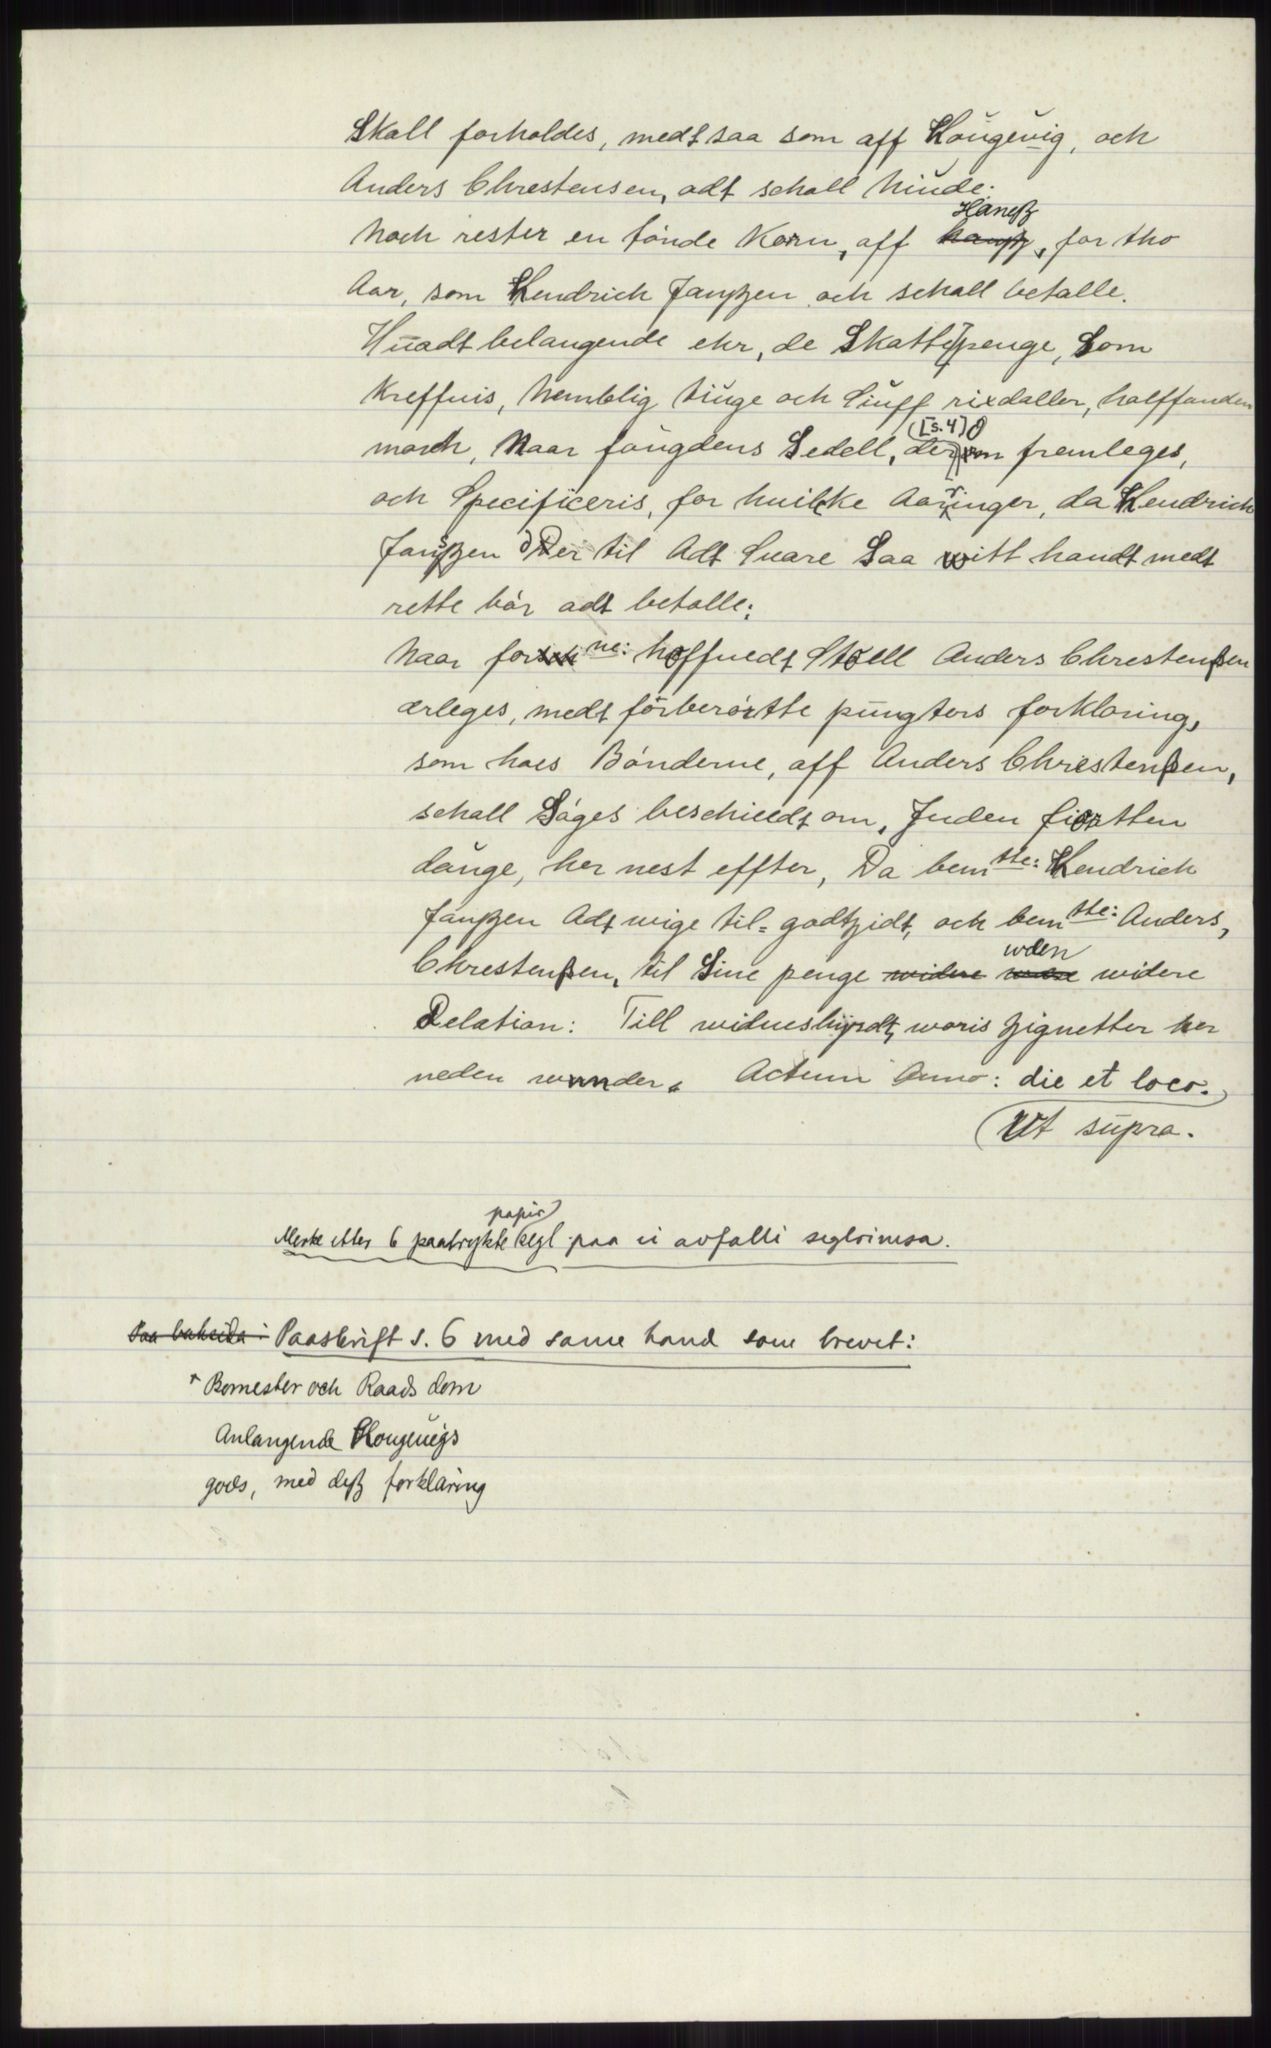 Skall forholdes, medt saa som aff Hougeuig, och
Anders Chrestensen, adt schall hinde.
Noch rester en tønde Korn, aff Haneß, for tho
Aar, som Hendrich Janßen och schall betalle.
Huadt belangende ehr, de Skatte penge, Som
Kreffuis, Nemblig tiuge och Siuff rixdaller, halffanden
march, Naar fougdens Sedell, der [s. 4] om fremleges,
och Specificeris, for huilke Aaringer, da Hendrich
Janßen der til Adt Suare Saa witt handt medt
rette bør adt betalle;
Naar for ne: hoffuedt Stoell Anders Chrestenßen
erleges, medt forberørtte pungters forklaring,
som hoes Bønderne, aff Anders Chrestenßen,
schall Søges beschiedt om, Inden fiortten
dauge, her nest effter, Da bem tte: Hendrich
Janßen Adt wige til= godtzidt, och bem tte: Anders,
Chrestenßen, til Sine penge widere wden widere
Delation: Till widnesbyrdt, woris Zignetter her
neden wunder. Actum Anno: die et loco.
Ut supra.
Merke etter 6 paatrykte papir segl paa ei avfalli seglrimsa.
Paa baksida: Paaskrift s. 6 med same hand som brevet:
" Bormester och Raads dom
Anlangende Hougeuigs
gods, med deß forklaring